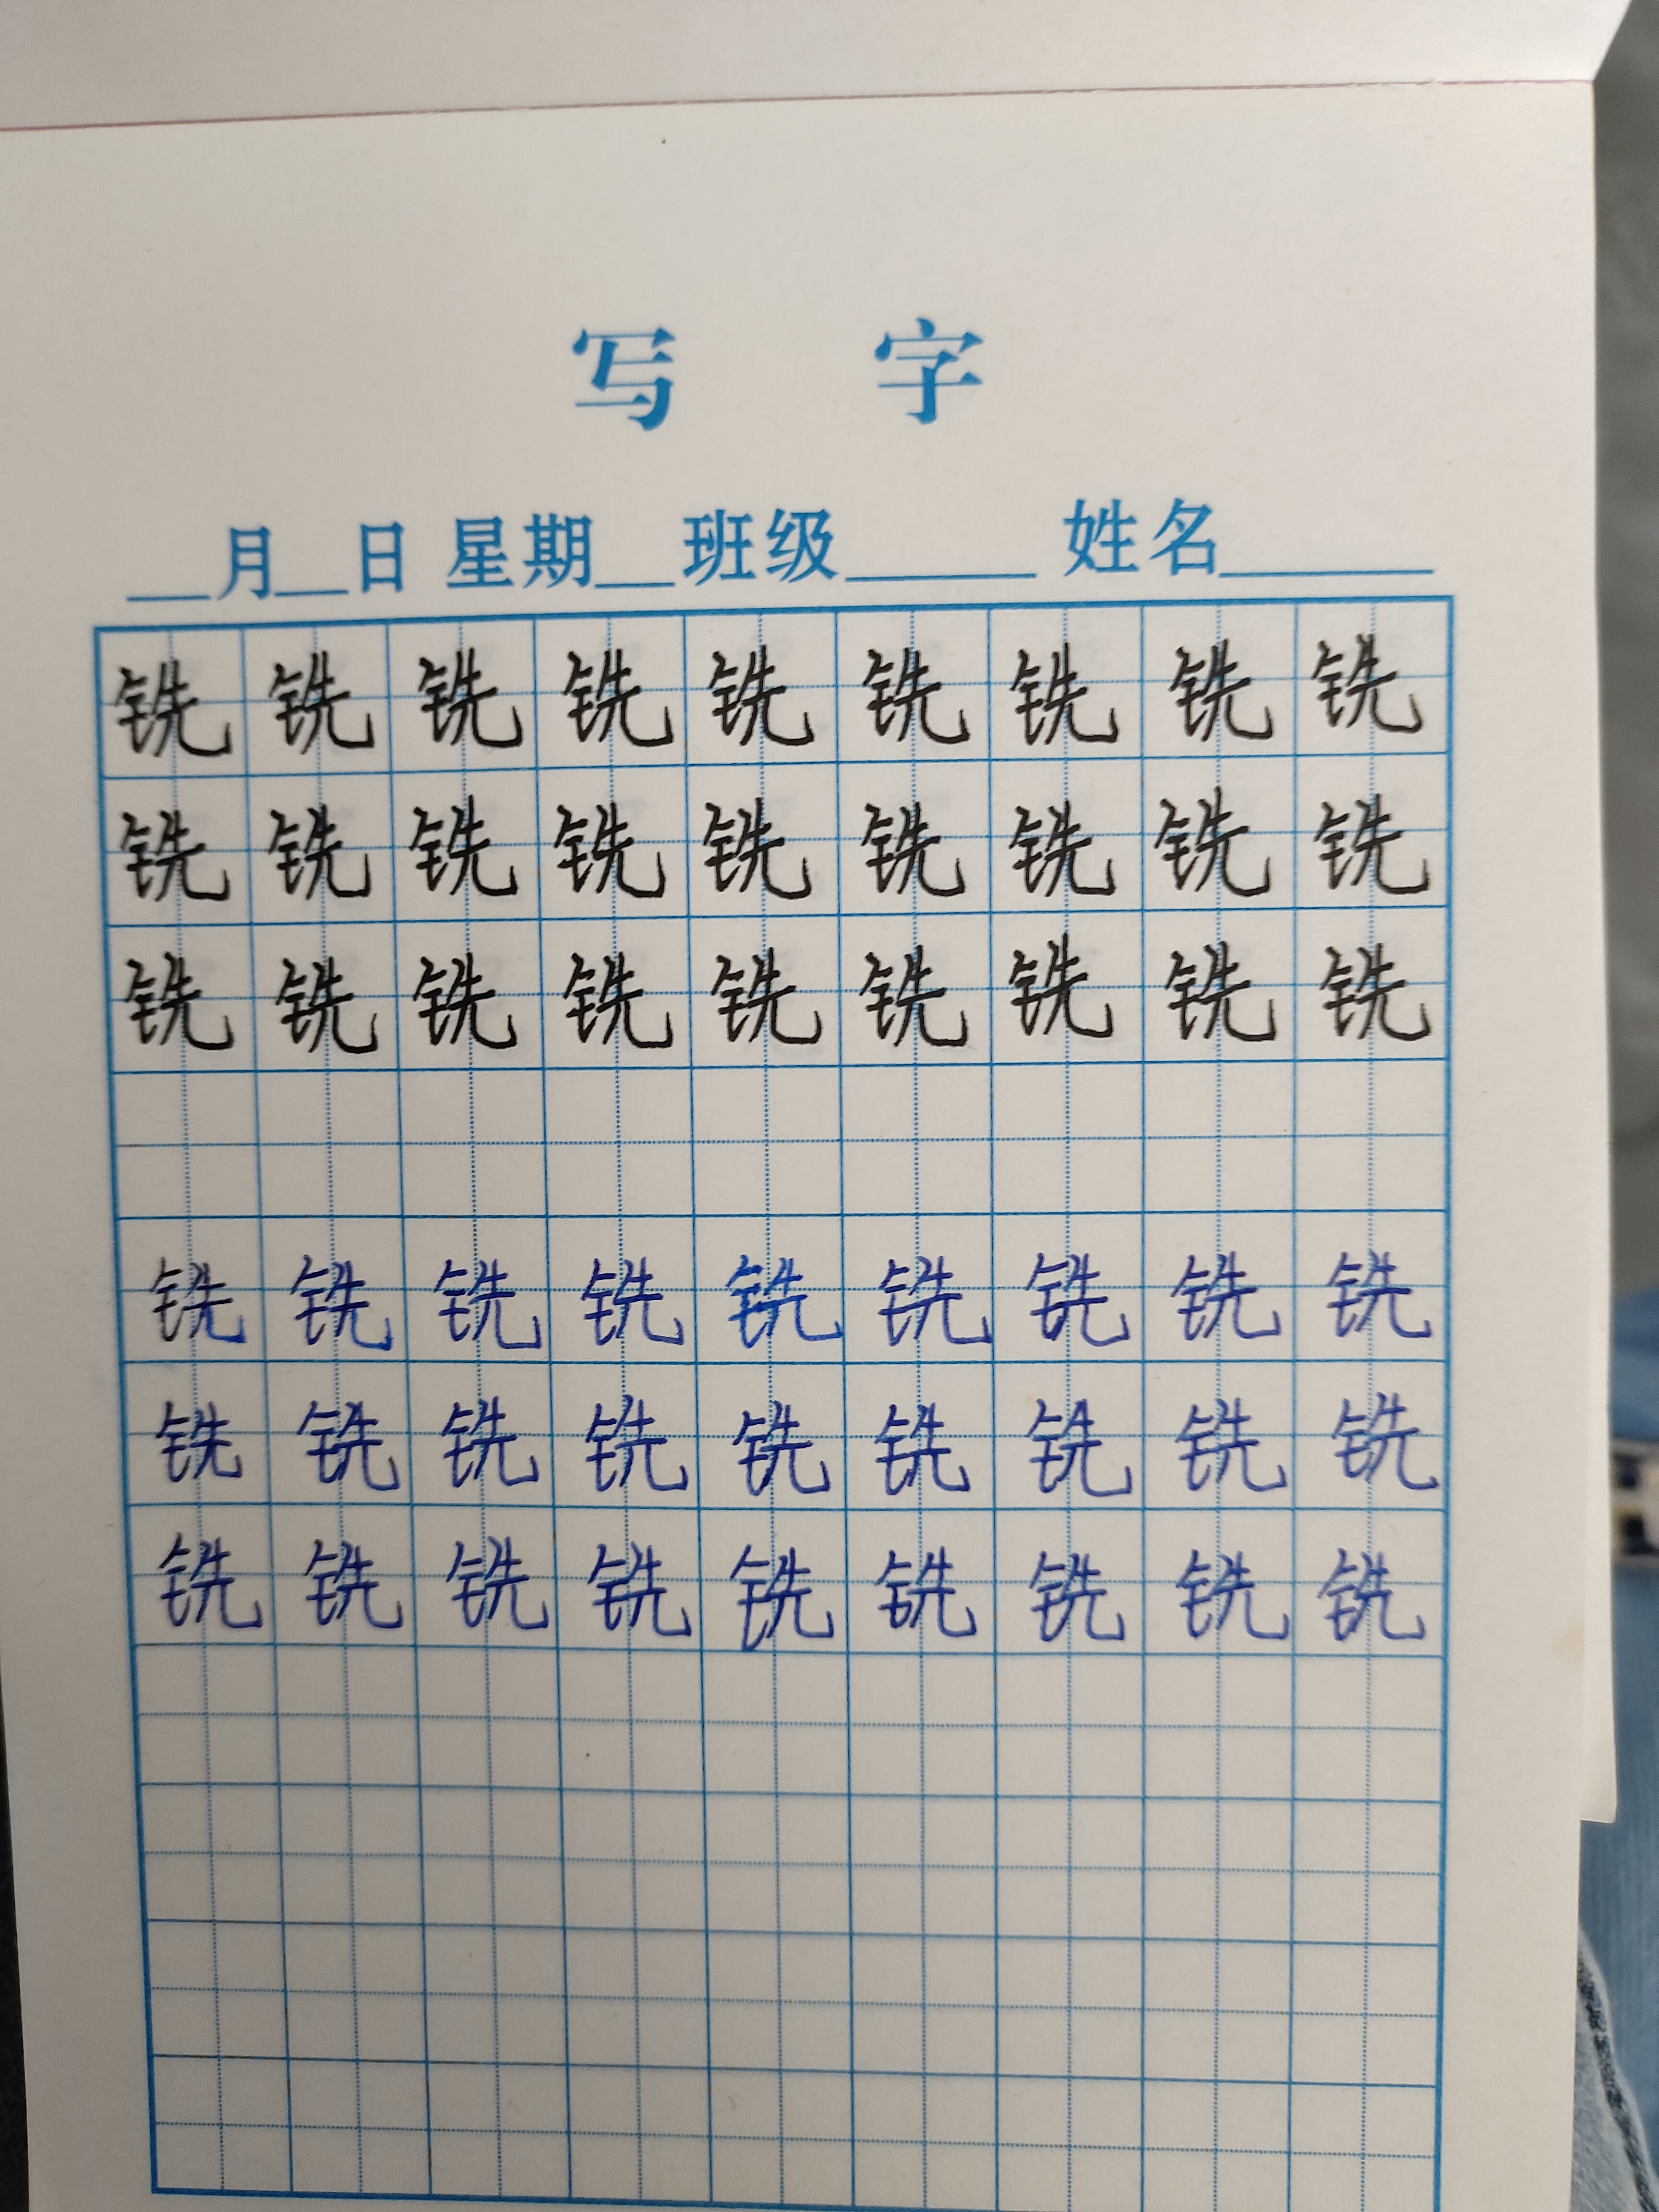 写 字
__月__日 星期__班级____ 姓名____
铣 铣 铣 铣 铣 铣 铣 铣 铣
铣 铣 铣 铣 铣 铣 铣 铣 铣
铣 铣 铣 铣 铣 铣 铣 铣 铣
铣 铣 铣 铣 铣 铣 铣 铣 铣
铣 铣 铣 铣 铣 铣 铣 铣 铣
铣 铣 铣 铣 铣 铣 铣 铣 铣